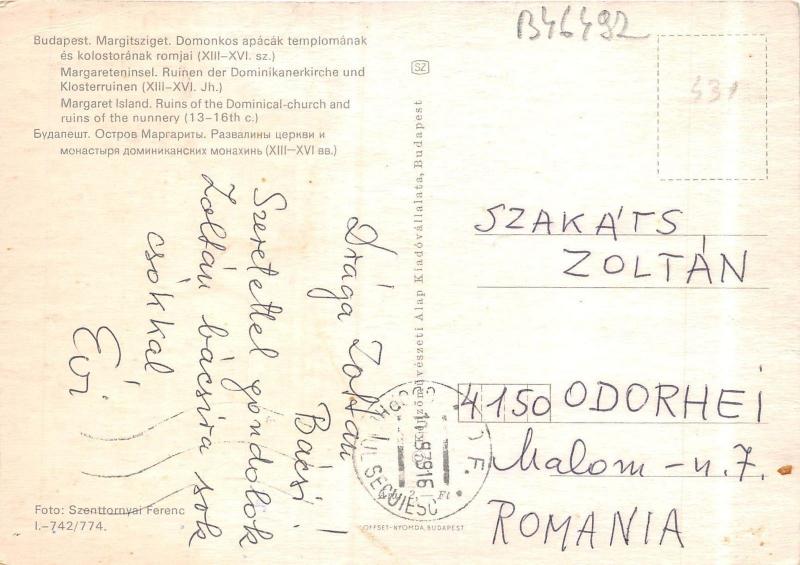 B46492
431
Budapest. Margitsziget. Domonkos apácák templomának
és kolostorának romjai (XIII–XVI. sz.)
Margareteninsel. Ruinen der Dominikanerkirche und
Klosterruinen (XIII–XVI. Jh.)
Margaret Island. Ruins of the Dominical-church and
ruins of the nunnery (13–16th c.)
Будапешт. Остров Маргариты. Развалины церкви и
монастыря доминиканских монахинь (XIII–XVI вв.)
Drága Zoltán
Bácsi!
Szeretettel gondolok
Zoltán bácsira sok
csókkal
Évi
Foto: Szenttornyai Ferenc
I.–742/774.
SZ
Képzőművészeti Alap Kiadóvállalata, Budapest
2,— Ft
OFFSET-NYOMDA, BUDAPEST
SECUIESC
SZAKÁTS
ZOLTÁN
4150 ODORHEI
Malom-u. 7.
ROMANIA